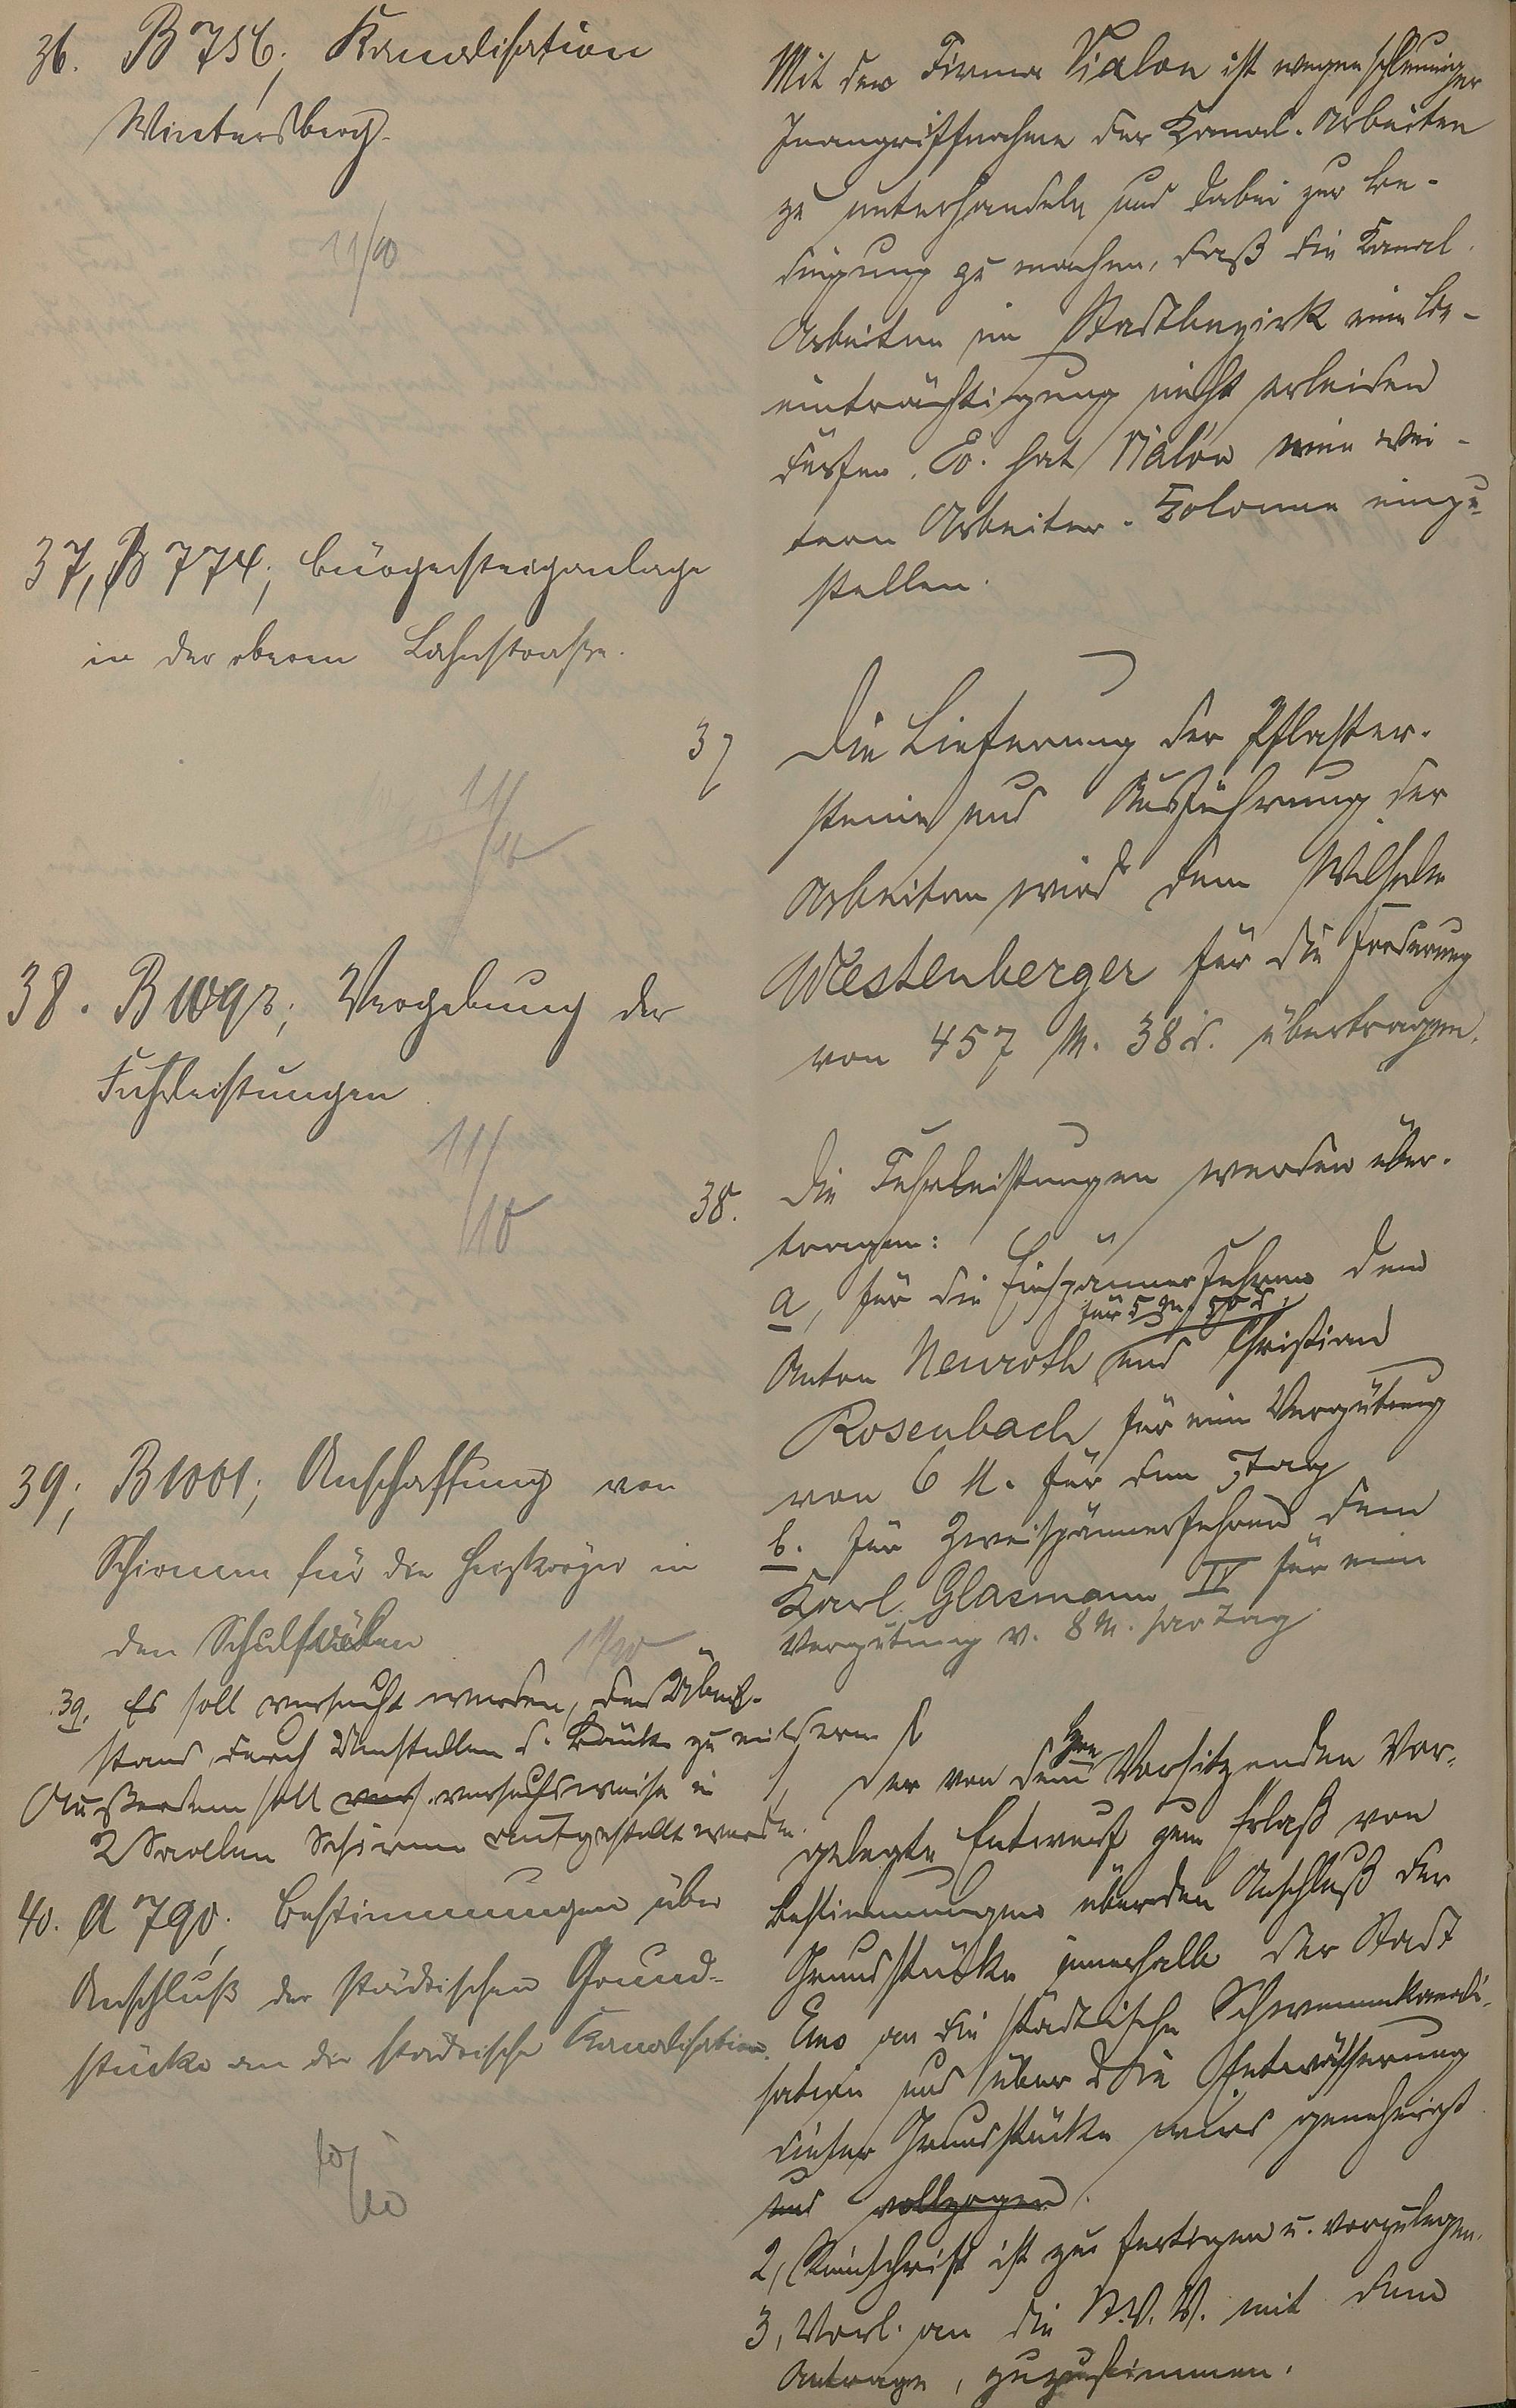 36. B 756; Kanalisation
Wintersberg.
11/10
Mit der Firma Vialon ist wegen schleuniger
Inangriffnahme der Kanal-Arbeiten
zu unterhandeln und dabei zur Be-
dingung zu machen, daß die Kanal-
Arbeiten im Stadtbezirk eine Be-
einträchtigung nicht erleiden
dürfen. Ev. hat Vialon eine wei-
tere Arbeiter-Kolonne einzu-
stellen.
37, B 774; Bürgersteiganlage
in der oberen Lahnstraße.
11/10
37 Die Lieferung der Pflaster-
steine und Ausführung der
Arbeiten wird dem Wilhelm
Westenberger für die Forderung
von 457 M. 38 d. übertragen.
38. B 1092; Vergebung der
Fuhrleistungen
11/10
38. Die Fuhrleistungen werden über-
tragen:
a, für die Einspännerfuhren dem
für 5 M. 50 d.
Anton Neuroth und Christian
Rosenbach für eine Vergütung
von 6 M. für den Tag
b. für Zweispännerfuhren dem
Karl Glasmann IV für eine
Vergütung v. 8 M. pro Tag.
39; B 1001; Anschaffung von
Schirmen für die Heizkörper in
den Schulsälen
11/10
39. Es soll versucht werden, den Übel-
stand durch Umstellen d. Bänke zu mildern
Außerdem soll vers. versuchsweise in
2 Saelen Schirme aufgestellt werden.
40. A 790. Bestimmungen über
Anschluß der städtischen Grund-
stücke an die städtische Kanalisation.
10/10
1, Der von dem Hrn Vorsitzenden Vor-
gelegte Entwurf zum Erlaß von
Bestimmungen über den Anschluß der
Grundstücke innerhalb der Stadt
Ems an die städtische Schwemmkanali-
sation und über die Entwässerung
dieser Grundstücke wird genehmigt
und vollzogen.
2, Reinschrift ist zu fertigen u. vorzulegen.
3, Vorl. an die St.V.V. mit dem
Antrage, zuzustimmen.